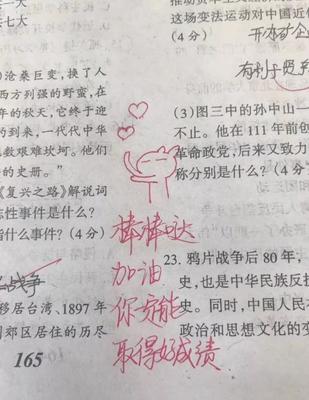 一大
七大
这场变法运动对中国近
(4分)
沧桑巨变,换了人
西方列强的野蛮,在
年的秋天,它终于迎
的到来,一代代中华
无数艰难坎坷。他们
的史册。”
《复兴之路》解说词
志性事件是什么?
指什么事件?(4分)
战争
移居台湾、1897年
到郊区居住的历尽
165
棒棒哒
加油
你一定能
取得好成绩
(3)图三中的孙中山一
不止。他在111年前创
革命政党,后来又致力
称分别是什么?(4分)
23. 鸦片战争后80年,
史,也是中华民族反抗
史。同时,中国人民
政治和思想文化的变